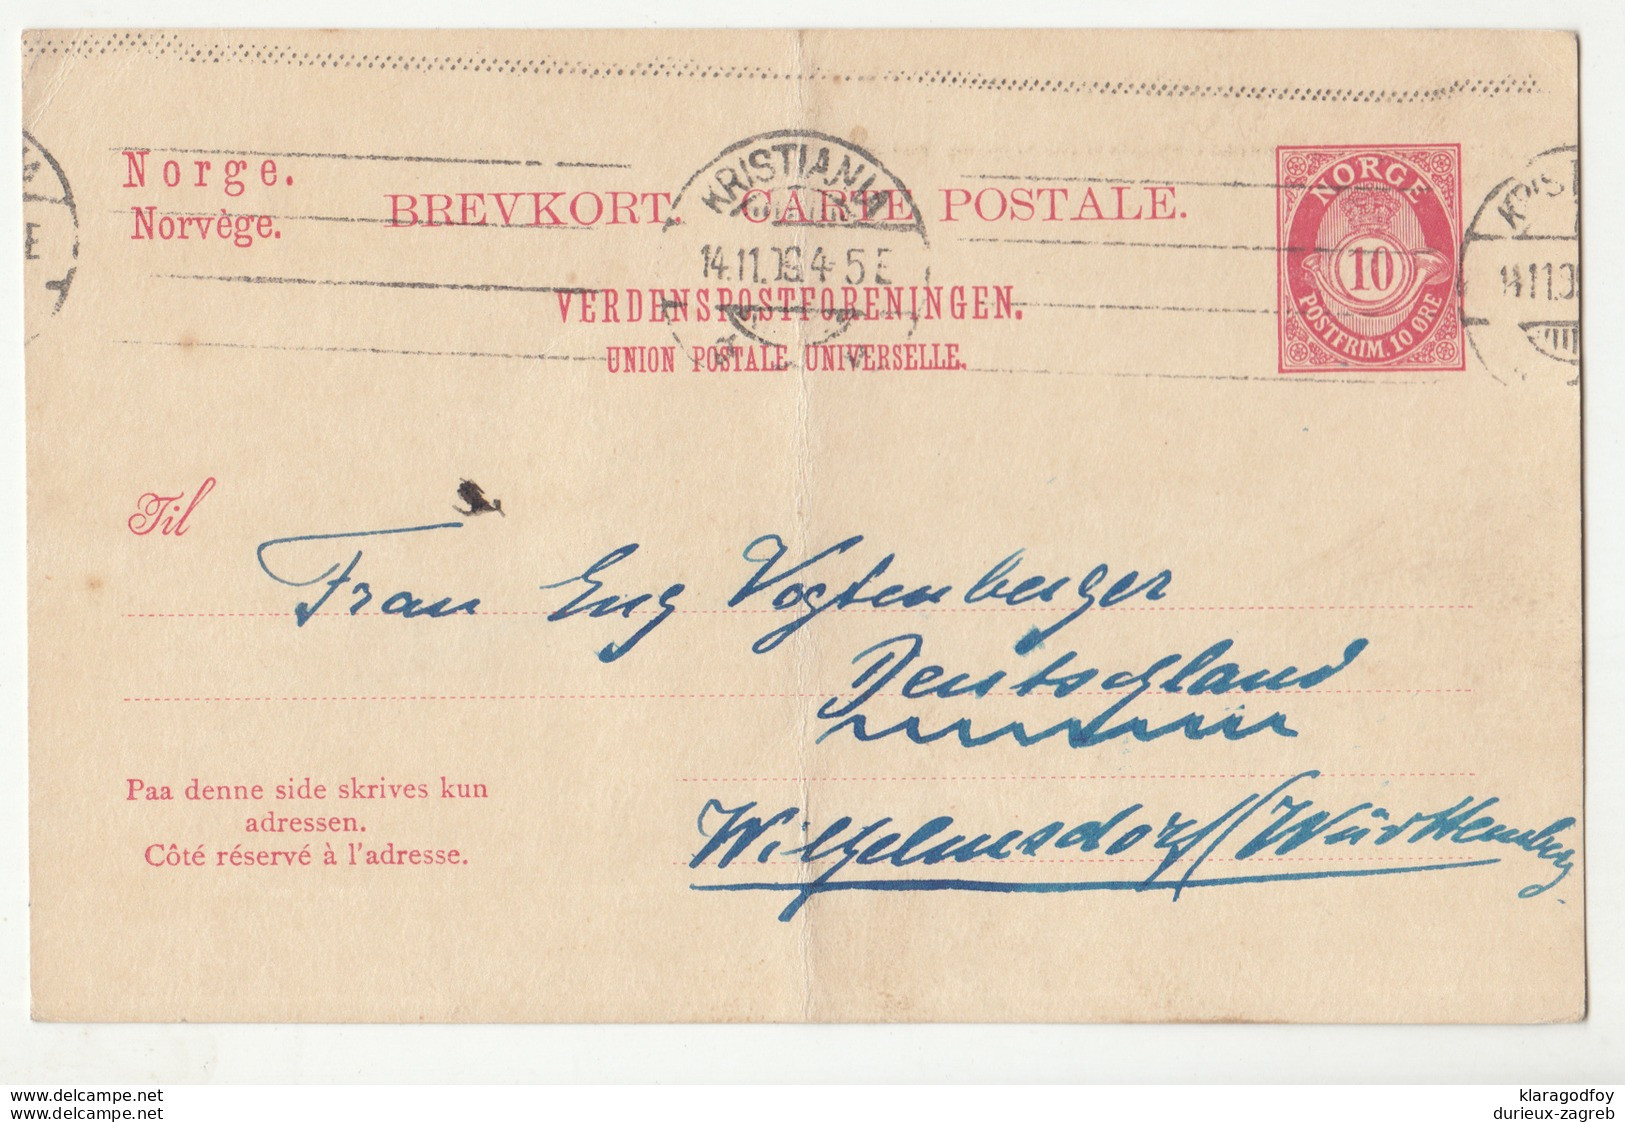 Norge.
Norvège.
BREVKORT. CARTE POSTALE.
VERDENSPOSTFORENINGEN.
UNION POSTALE UNIVERSELLE.
KRISTIANIA
14.11.09.4-5 E
NORGE
10
POSTFRIM. 10 ØRE
Til
Frau Eug Vogtenberger
Deutschland
Wilhelmsdorf (Württemberg
Paa denne side skrives kun
adressen.
Côté réservé à l'adresse.
klaragodfoy.delcampe.net
durieux-zagreb.delcampe.net
klaragodfoy
durieux-zagreb